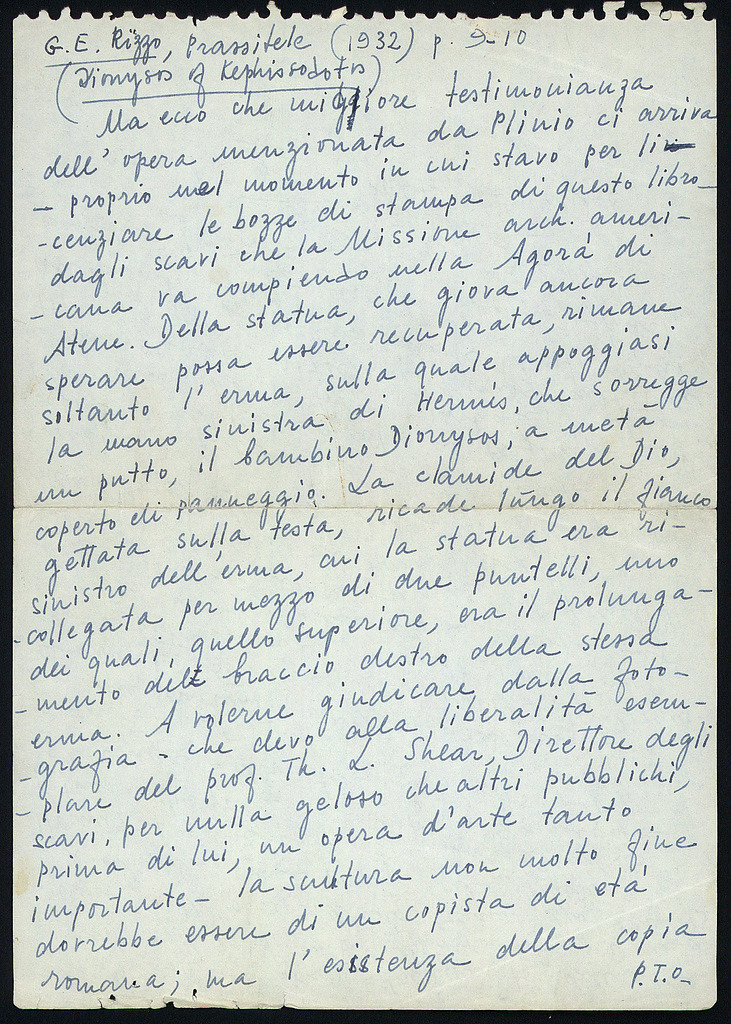 G. E. Rizzo, Prassitele (1932) p. 9-10
(Dionysos of Kephissodotos)
Ma ecco che migliore testimonianza
dell'opera menzionata da Plinio ci arriva
- proprio nel momento in cui stavo per li-
-cenziare le bozze di stampa di questo libro-
dagli scavi che la Missione arch. ameri-
-cana va compiendo nella Agorà di
Atene. Della statua, che giova ancora
sperare possa essere recuperata, rimane
soltanto l'erma, sulla quale appoggiasi
la mano sinistra di Hermès, che sorregge
un putto, il bambino Dionysos, a metà
coperto di panneggio. La clamide del Dio,
gettata sulla testa, ricade lungo il fianco
sinistro dell'erma, cui la statua era ri-
-collegata per mezzo di due puntelli, uno
dei quali, quello superiore, era il prolunga-
-mento del braccio destro della stessa
erma. A volerne giudicare dalla foto-
-grafia - che devo alla liberalità esem-
-plare del prof. Th. L. Shear, Direttore degli
scavi, per nulla geloso che altri pubblichi,
prima di lui, un opera d'arte tanto
importante - la scultura non molto fine
dovrebbe essere di un copista di età
romana; ma l'esistenza della copia
P.T.O-